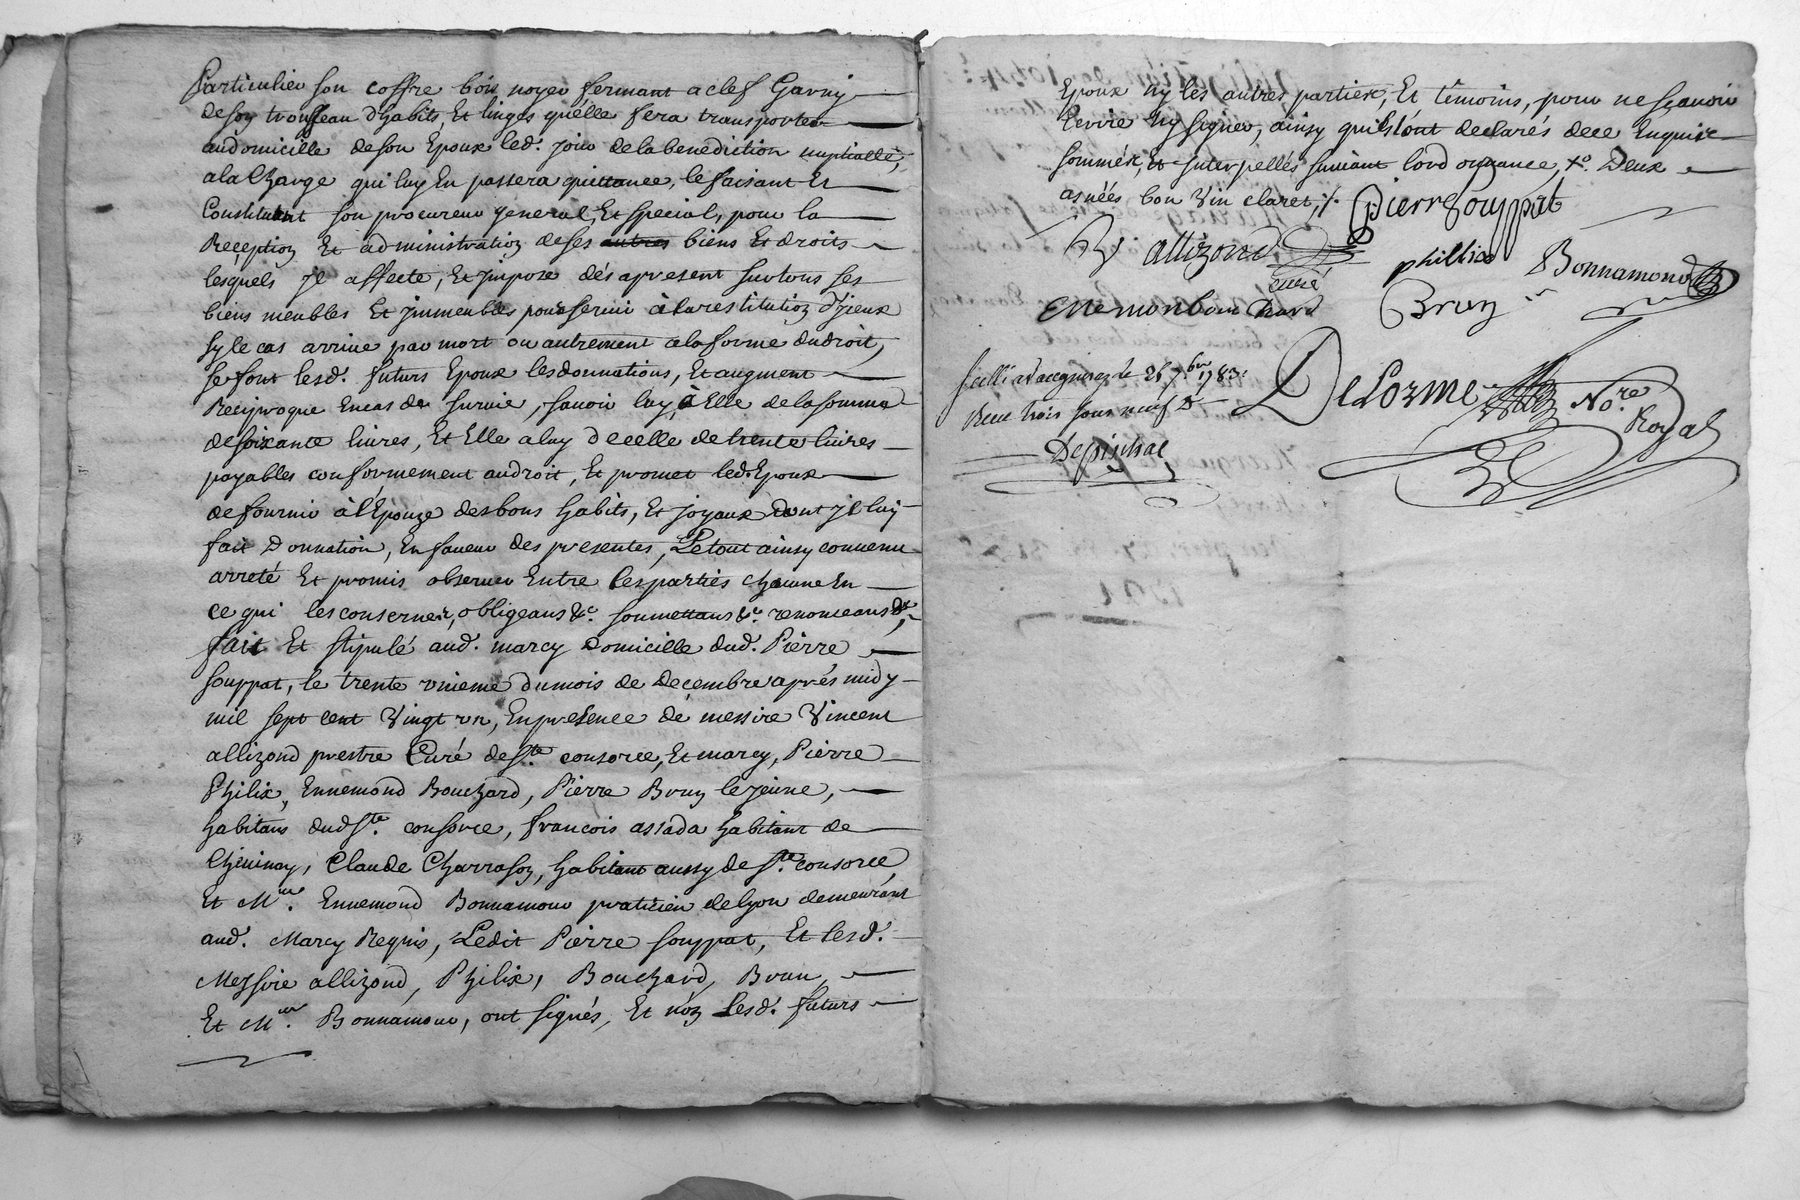 Particulier son coffre bois noyer fermant a clef Garny
de son trousseau d'habits, Et linges qu'elle fera transporter
au domicille de son Epoux led. jour de la benediction nuptialle,
a la Charge qu'il luy En passera quittance, le faisant Et
Constituant son procureur general, Et special, pour la
Reception Et administration de ses autres biens Et droits
lesquels jl affecte, Et jmpose dés apresent sur tous ses
biens meubles Et jmmeubles pour servir à la restitution d'jceux
sy le cas arrive par mort ou autrement a la forme du droit,
se font lesd. futurs Epoux les donnations, Et augment
Reciproque En cas de survie, savoir luy à Elle de la somme
de soixante livres, Et Elle a luy d'ecelle de trente livres
payables conformement au droit, Et promet led. Epoux
de fournir à l'Epouze des bons habits, Et joyaux dont jl luy
fait Donnation, En faveur des presentes, Le tout ainsy convenu
arreté Et promis observer Entre les parties chacune En
ce qui les conserner, obligeans &c. soumettans &c. renonceans &c,
fait Et stipulé aud. marcy Domicille dud. Pierre
souppat, le trente vnieme du mois de Decembre aprés midy
mil sept cent Vingt vn, En presence de messire Vincent
allizond prestre Curé de Ste. consorce, Et marcy, Pierre
Philix, Ennemond Bouchard, Pierre Brun le jeune,
habitans dud Ste. consorce, francois assada habitant de
Chevinay, Claude Charrason, habitant aussy de Ste. consorce,
Et Mre. Ennemond Bonnamour praticien de lyon demeurant
aud. Marcy Requis, Ledit Pierre souppat, Et lesd.
Messire allizond, Philix, Bouchard, Brun,
Et Mre. Bonnamour, ont signés, Et non lesd. futurs
Epoux ny les autres parties, Et témoins, pour ne sçavoir
Ecrire ny signer, ainsy qu'ils l'ont declarés de ce Enquis
sommés, Et Interpellés suivant l'ordonnance, Xo. Deux
asnées bon Vin claret ;/. Pierre Souppat
V. allizond
curé
phillix
Bonnamour
Enemon bouchard
Brun
scellé 26 Xbre 1783.
Receu trois sous neuf D
Delorme Nore.
Royal
Depinhac